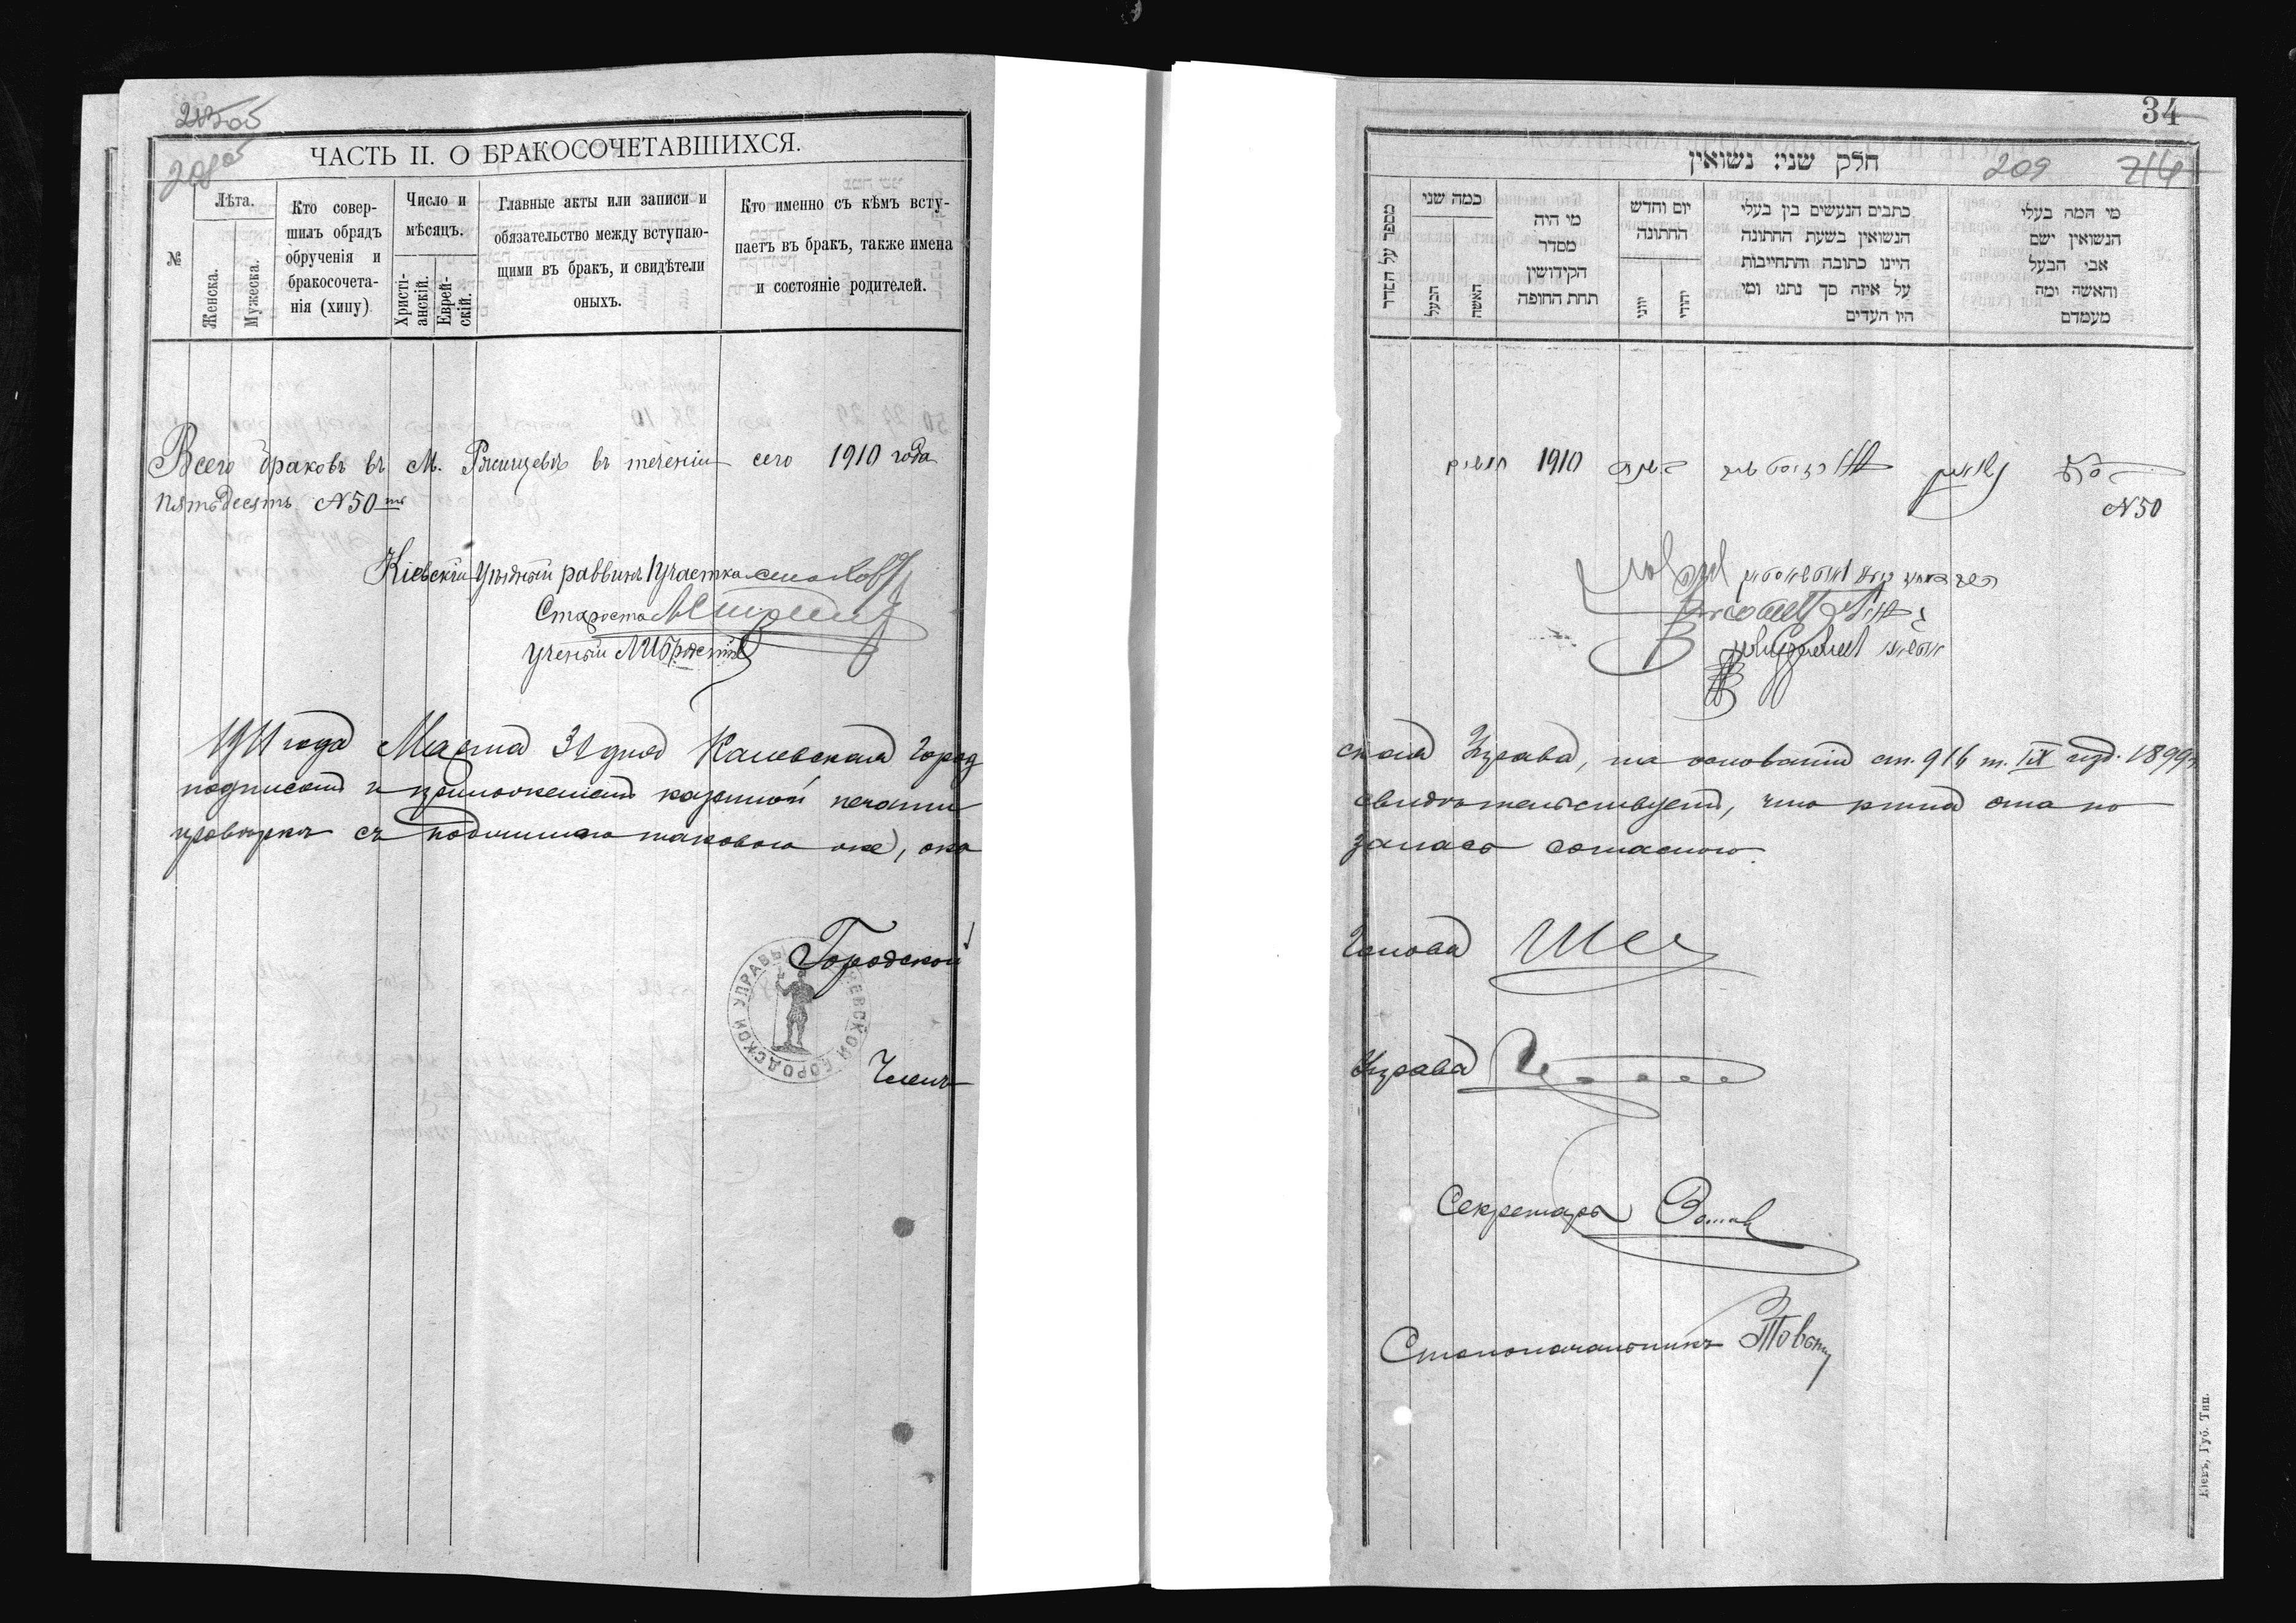 205
208 об
ЧАСТЬ II. О БРАКОСОЧЕТАВШИХСЯ.
№
Лѣта.
Женска.
Мужеска.
Кто совер-
шилъ обрядъ
обрученія и
бракосочета-
нія (хипу)
Число и
мѣсяцъ.
Христі-
анскій.
Еврей-
скій.
Главные акты или записи и
обязательство между вступаю-
щими въ бракъ, и свидѣтели
оныхъ.
Кто именно съ кѣмъ всту-
паетъ въ бракъ, также имена
и состояніе родителей.
Всего браковъ въ М. Ржищевѣ въ теченіи сего 1910 года
пятьдесятъ №50
Кіевскій Уѣздный раввинъ 1 участка
Староста
Ученый
1911 года Марта 31 дня Каневская Город
подписомъ и приложеніемъ казенной печати
провѣркѣ съ подлинною таковою же, ока
Городской
КАНЕВСКОЙ ГОРОДСКОЙ УПРАВЫ
Членъ
34
209
חלק שני: נשואין
מספר על הסדר
כמה שני
הבעל
האשה
מי היה
מסדר
הקידושין
תחת החופה
יום וחדש
החתונה
יווני
יהודי
כתבים הנעשים בין בעלי
הנשואין בשעת החתונה
היינו כתובה והתחייבות
על איזה סך נתנו ומי
היו העדים
מי המה בעלי
הנשואין ישם
אבי הבעל
והאשה ומה
מעמדם
1910
№50
ская Управа, на основаніи ст. 916 т. IX изд. 1899 г.
свидѣтельствуетъ, что книга эта по
залась согласною.
Голова
Управа
Секретарь
Столоначальникъ
Кіевъ, Губ. Тип.